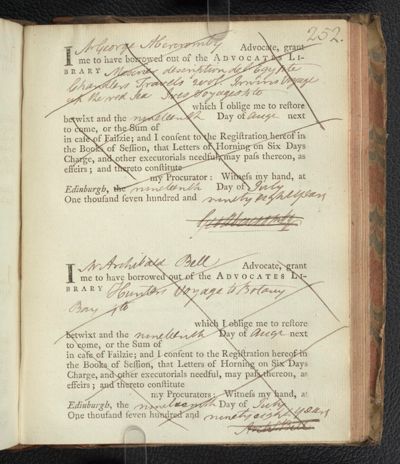 252.
I Mr George Abercromby Advocate, grant
me to have borrowed out of the ADVOCATES LI-
BRARY description de l'Egypte
Chandlers Travels 2 vol. Irwins Voyage
up the red Sea Ives Voyage 4to
which I oblige me to reſtore
betwixt and the nineteenth Day of Augt next
to come, or the Sum of
in caſe of Failzie; and I conſent to the Regiſtration hereof in
the Books of Seſſion, that Letters of Horning on Six Days
Charge, and other executorials needful, may paſs thereon, as
effeirs; and thereto conſtitute
my Procurator: Witneſs my hand, at
Edinburgh, the nineteenth Day of July
One thouſand ſeven hundred and ninety eight years
Geo Abercromby
I Mr Archibald Bell Advocate, grant
me to have borrowed out of the ADVOCATES LI-
BRARY Hunters Voyage to Botany
Bay 4to
which I oblige me to reſtore
betwixt and the nineteenth Day of Augt next
to come, or the Sum of
in caſe of Failzie; and I conſent to the Regiſtration hereof in
the Books of Seſſion, that Letters of Horning on Six Days
Charge, and other executorials needful, may paſs thereon, as
effeirs; and thereto conſtitute
my Procurator: Witneſs my hand, at
Edinburgh, the nineteenth Day of July
One thouſand ſeven hundred and ninety eight years
Archd Bell